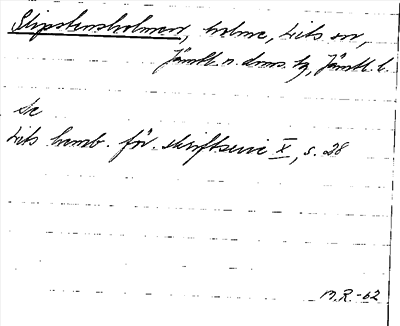 Slipstensholmen, holme, Lits sn,
Jämtl. n. doms. tg, Jämtl. l.
Se
Lits hemb. för. skriftserie X, s. 28
M.R.-62